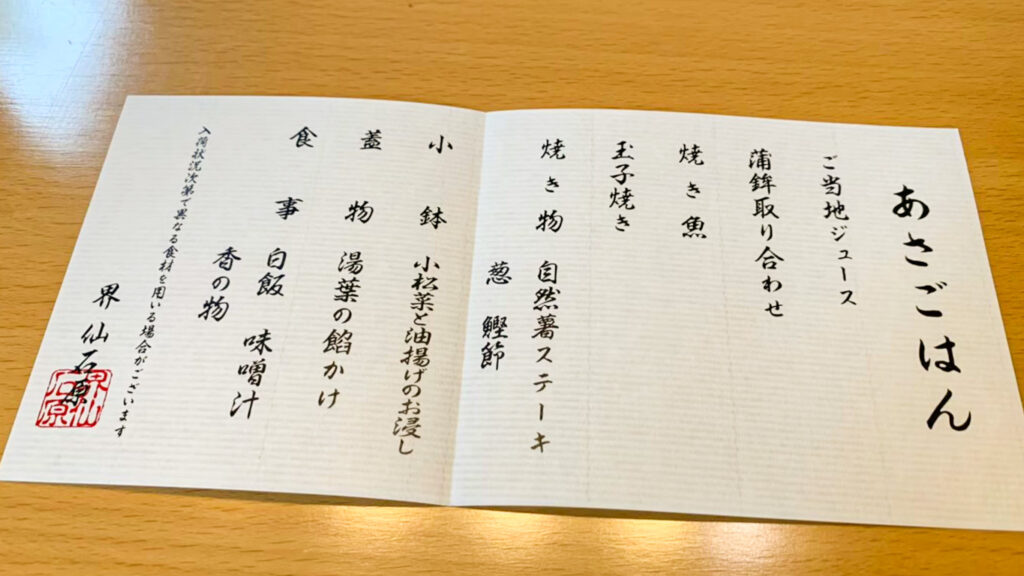 あさごはん
ご当地ジュース
蒲鉾取り合わせ
焼き魚
玉子焼き
焼き物 自然薯ステーキ
葱 鰹節
小鉢 小松菜と油揚げのお浸し
蓋物 湯葉の餡かけ
食事 白飯 味噌汁
香の物
入荷状況次第で異なる食材を用いる場合がございます
界 仙石原
界仙石原